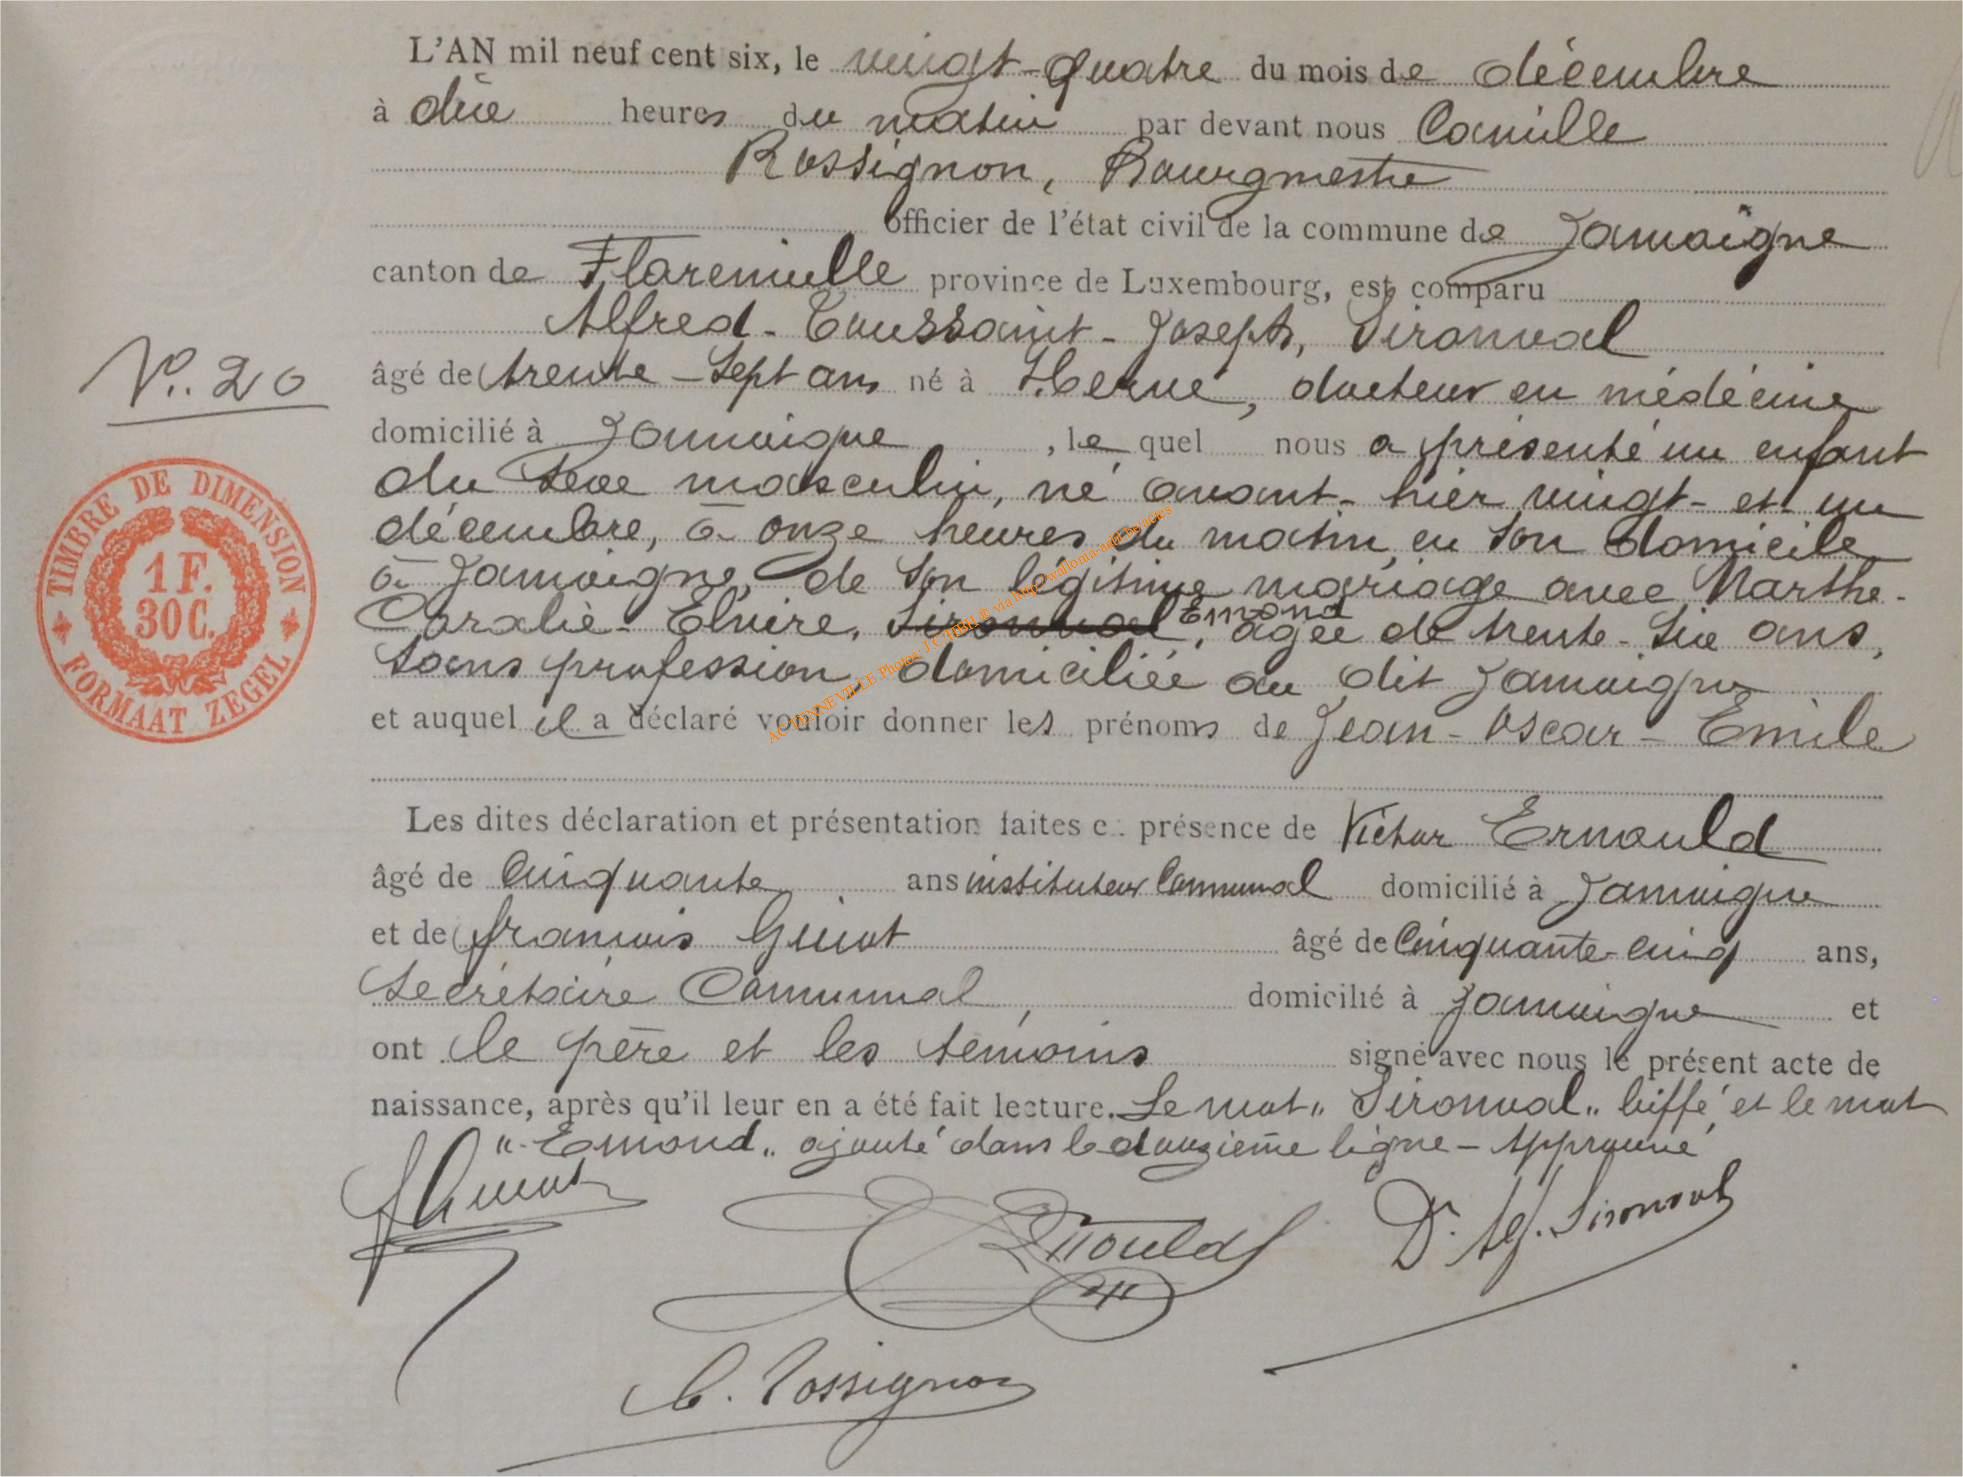 L'AN mil neuf cent six, le vingt-quatre du mois de décembre
à dix heures du matin par devant nous Camille
Rossignon, Bourgmestre
officier de l'état civil de la commune de Jamoigne
canton de Florenville province de Luxembourg, est comparu
Alfred-Toussaint-Joseph, Sironval
N°. 20
âgé de trente-sept ans né à Herve, docteur en médécine
domicilié à Jamoigne, le quel nous a présenté un enfant
du sexe masculin, né avant-hier vingt-et-un
décembre, à onze heures du matin, en son domicile
à Jamoigne, de son légitime mariage avec Marthe-
Coralie-Elvire, Sironval Emond, âgée de trente-six ans,
sans profession, domiciliée au dit Jamoigne
et auquel il a déclaré vouloir donner les prénoms de Jean-Oscar-Emile
Les dites déclaration et présentation faites en présence de Victor Ernould
âgé de cinquante ans instituteur Communal domicilié à Jamoigne
et de François Guiot âgé de Cinquante-cinq ans,
Secrétaire Communal, domicilié à Jamoigne et
ont le père et les témoins signé avec nous le présent acte de
naissance, après qu'il leur en a été fait lecture. Le mot "Sironval" biffé, et le mot
"Emond" ajouté dans la douzième ligne - Approuvé
F Guiot
Ernould
Dr. Alf. Sironval
C. Rossignon
TIMBRE DE DIMENSION
1 F.
30 C.
FORMAAT ZEGEL